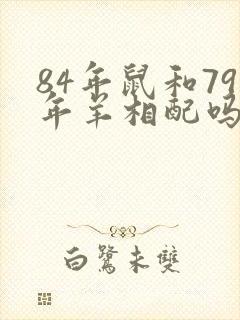 84年鼠和79
年羊相配吗
白鹭未双